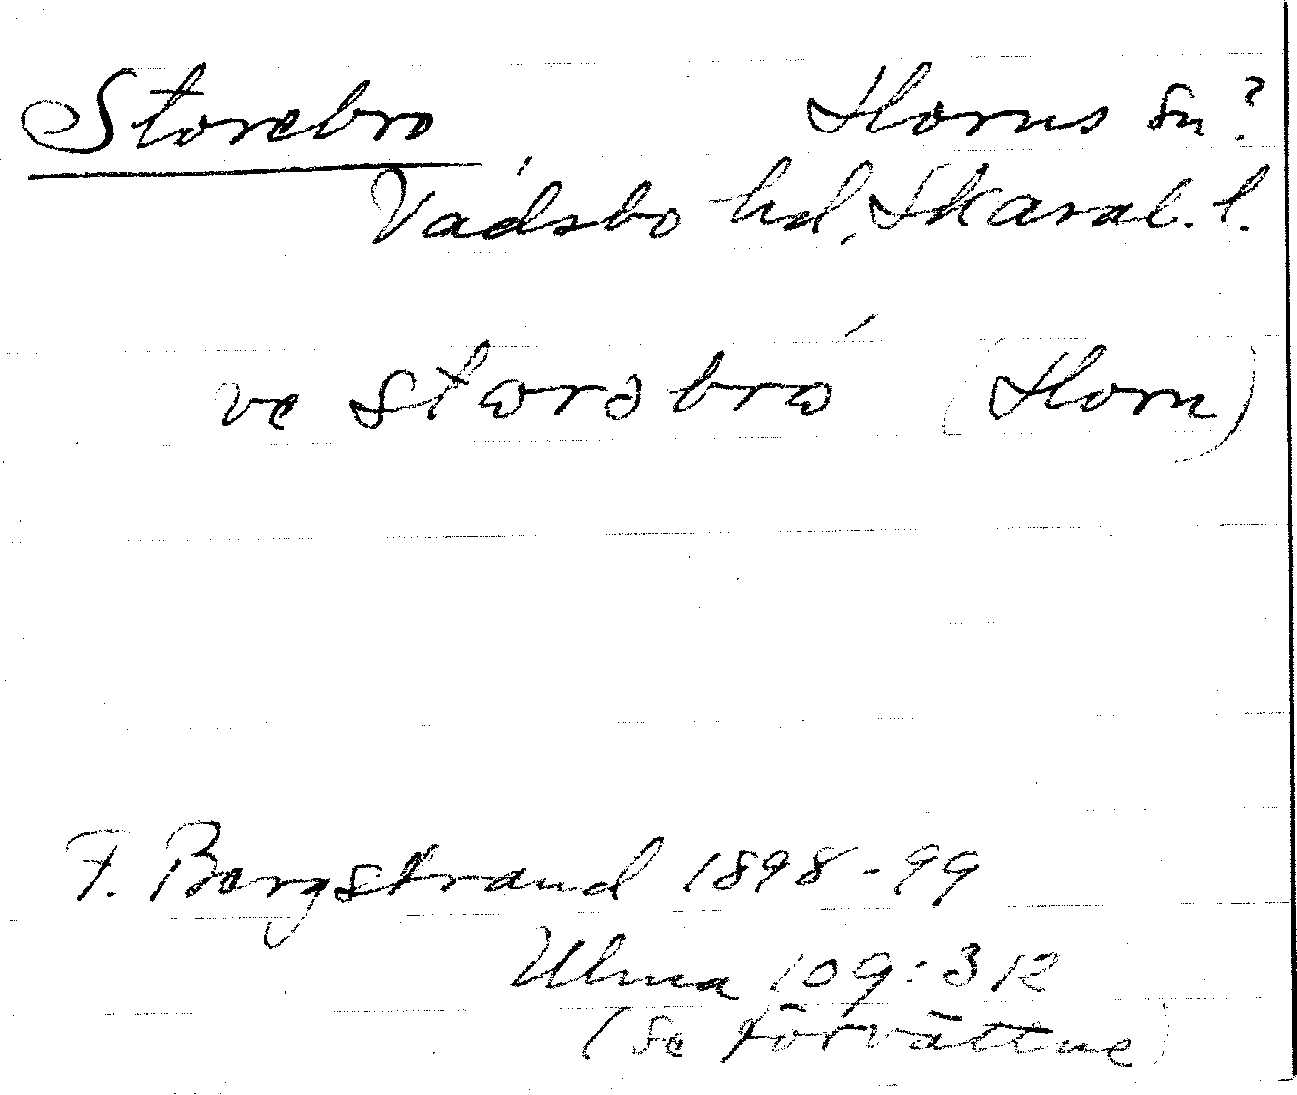 Storebro Horns sn?
Vadsbo hd, Skarab. l.
ve stɷrəbrɷ́ (Horn)
F. Bergstrand 1898-99
Ulma 109:312
(Se Förvättne)